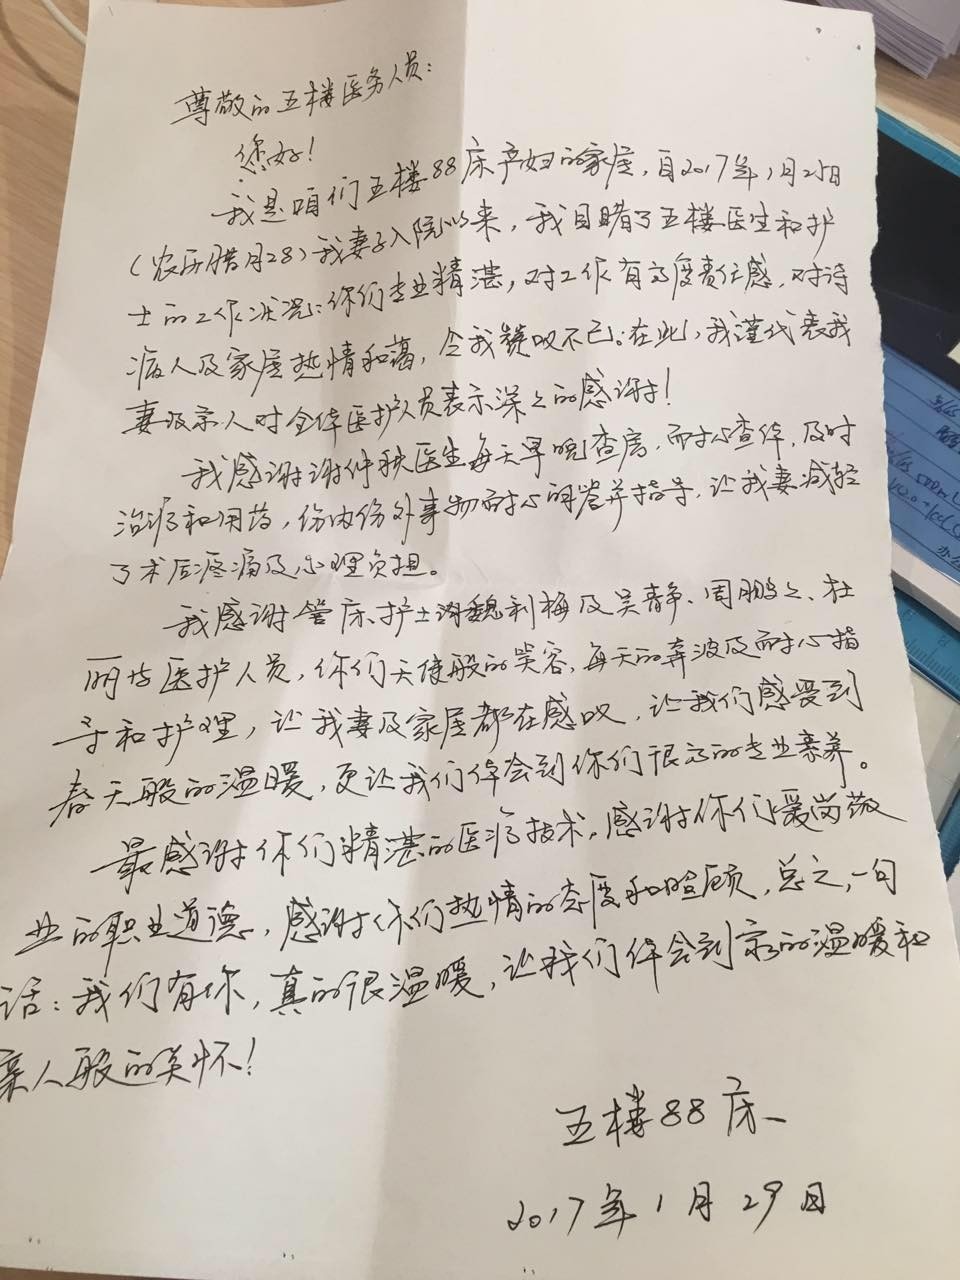 尊敬的五楼医务人员：
您好！
我是咱们五楼88床产妇的家属，自2017年1月25日
（农历腊月28）我妻子入院以来，我目睹了五楼医生和护
士的工作状况：你们专业精湛，对工作有高度责任感，对待
病人及家属热情和蔼，令我赞叹不已。在此，我谨代表我
妻及家人对全体医护人员表示深之的感谢！
我感谢谢仲秧医生每天早晚查房，耐心查体，及时
治疗和用药，份内份外事物耐心解答并指导，让我妻减轻
了术后疼痛及心理负担。
我感谢管床护士魏利梅及吴静、周鹏之、杜
丽等医护人员，你们天使般的笑容，每天的奔波及耐心指
导和护理，让我妻及家属都在感叹，让我们感受到
春天般的温暖，更让我们体会到你们很高的专业素养。
最感谢你们精湛的医疗技术，感谢你们爱岗敬
业的职业道德，感谢你们热情的态度和照顾，总之，一句
话：我们有你，真的很温暖，让我们体会到家的温暖和
亲人般的关怀！
五楼88床
2017年1月29日